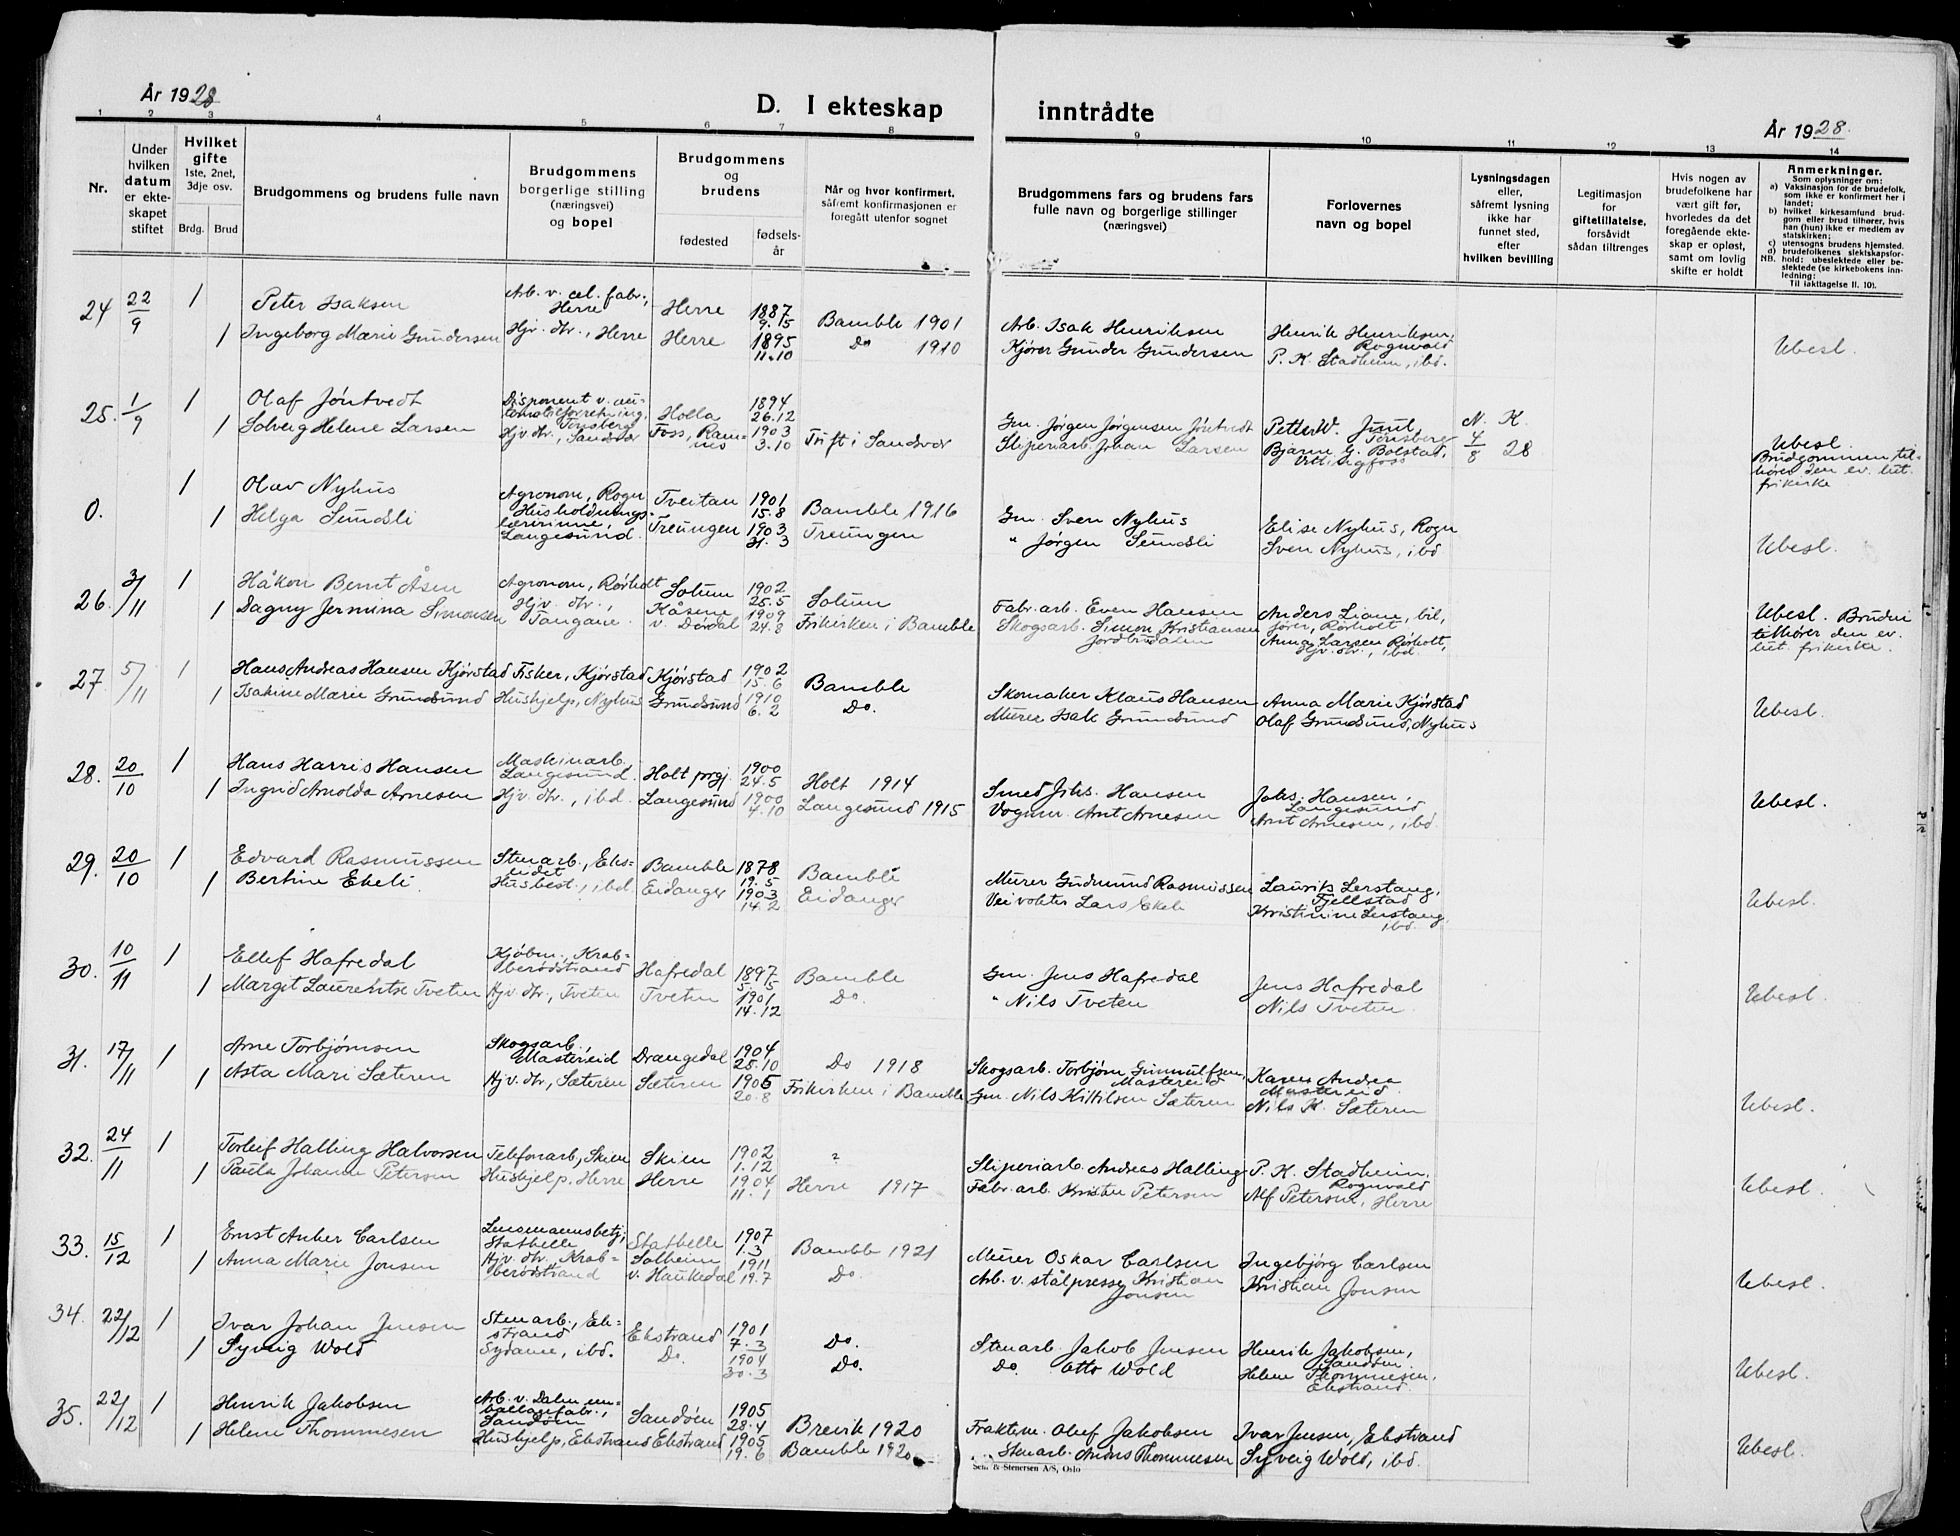 År 1928
D. I ekteskap inntrådte
År 1928.
1 2 3 4 5 6 7 8 9 10 11 12 13 14
Nr.
Under hvilken datum er ekteskapet stiftet
Hvilket gifte 1ste, 2net, 3dje osv.
Brdg. Brud
Brudgommens og brudens fulle navn
Brudgommens borgerlige stilling (næringsvei) og bopel
Brudgommens og brudens
fødested fødselsår
Når og hvor konfirmert, såfremt konfirmasjonen er foregått utenfor sognet
Brudgommens fars og brudens fars fulle navn og borgerlige stillinger (næringsvei)
Forlovernes navn og bopel
Lysningsdagen eller, såfremt lysning ikke har funnet sted, efter hvilken bevilling
Legitimasjon for giftetillatelse, forsåvidt sådan tiltrenges
Hvis nogen av brudefolkene har vært gift før, hvorledes da det foregående ekteskap er opløst, samt om lovlig skifte er holdt
Anmerkninger.
Som oplysninger om:
a) Vaksinasjon for de brudefolk, som ikke er konfirmert her i landet;
b) hvilket kirkesamfund brudgom eller brud tilhører, hvis han (hun) ikke er medlem av statskirken;
c) utensogns brudens hjemsted.
d) brudefolkenes slektskapsforhold: ubeslektede eller beslektede (se kirkebokens innledning:
NB.
Til iakttagelse II. 10).
24 22/9 1 Peter Isaksen Arb. v. cel. fabr., Herre Herre 1887 9.15 Bamble 1901 Arb. Isak Henriksen Henrik Henriksen, Rognvald
1 Ingeborg Marie Gundersen Hjv. dtr., Herre Herre 1895 11.10 Do 1910 Kjører Gunder Gundersen P. K. Stadheim, ibd. Ubesl.
25. 1/9 1 Olaf Jøntvedt Disponent v. automobilforretning, Tønsberg Holla 1894 26.12 Gm. Jørgen Jørgensen Jøntvedt Petter W. Juul, Tønsberg N. K.
1 Solveig Helene Larsen Hjv. dtr., Sandvær Foss, Ramnes 1903 3.10 Sliperiarb. Johan Larsen Bjarne G. Bolstad, 4/8 28 Ubesl. Brudgommen tilhører den ev. lut. frikirke
0. 1 Olav Nyhus Agronom, Rogn Tveitan 1901 15.8 Bamble 1916 Gm. Sven Nyhus Elise Nyhus, Rogn
1 Helga Sundsli Husholdningslærerinne, Langesund Treungen 1903 31.3 Treungen " Jørgen Sundsli Sven Nyhus, ibd Ubesl.
26. 3/11 1 Håkon Bernt Åsen Agronom, Rørholt Solum 1902 25.5 Solum Fabr. arb. Even Hansen Anders Liane, bilfører, Rørholt
1 Dagny Jermina Simonsen Hjv. dtr., Tangane Kåsene v. Dørdal 1909 24.8 Frikirken i Bamble Skogsarb. Simon Kristiansen Jordbrudalen Anna Larsen Rørholt, Hjv. dtr., ibd. Ubesl. Bruden tilhører den ev. lut. frikirke.
27 5/11 1 Hans Andreas Hansen Kjørstad Fisker, Kjørstad Kjørstad 1902 15.6 Bamble Skomaker Klaus Hansen Anna Marie Kjørstad
1 Isakine Marie Grundsund Hushjelp, Nyhus Grundsund 1910 6.2 Do. Murer Isak Grundsund Olaf Grundsund, Nyhus Ubesl.
28. 20/10 1 Hans Harris Hansen Maskinarb. Langesund Holt prgj. 1900 24.5 Holt 1914 Smed Johs. Hansen Johs. Hansen, Langesund
1 Ingrid Arnolda Arnesen Hjv. dtr., ibd. Langesund 1900 4.10 Langesund 1915 Vognm. Arnt Arnesen Arnt Arnesen, ibd. Ubesl.
29. 20/10 1 Edvard Rasmussen Stenarb., Ekseidet Bamble 1878 19.5 Bamble Murer Gudmund Rasmussen Laurits Lerstang, Fjellstad
1 Bertine Ekeli. Husbest., ibd. Eidanger 1903 14.2 Eidanger Veivokter Lars Ekeli Kristinine Lerstang, ibd. Ubesl.
30. 10/11 1 Ellef Hafredal Kjøbm., Krabberødstrand Hafredal 1897 5/5 Bamble Gm. Jens Hafredal Jens Hafredal
1 Margit Laurentse Tveten Hjv. dtr., Tveten Tveten 1901 14.12 Do. " Nils Tveten Nils Tveten Ubesl.
31. 17/11 1 Arne Torbjørnsen Skogsarb., Mastereid Drangedal 1904 25.10 Do 1918 Skogsarb. Torbjørn Gunnulfsen, Mastereid Karen Andrea Mastereid
1 Asta Mari Sæteren Hjv. dtr., Sæteren Sæteren 1905 20.8 Frikirken i Bamble Gm. Nils Kittilsen Sæteren Nils K. Sæteren Ubesl.
32. 24/11 1 Torleif Halling Halvorsen Telefonarb., Skien Skien 1902 1.12 ? Sliperiarb. Andreas Halling P. K. Stadheim, Rognvald
1 Paula Johanne Petersen Hushjelp, Herre Herre 1904 11.1 Herre 1917 Fabr. arb. Kristen Petersen Alf Petersen, Herre Ubesl.
33. 15/12 1 Ernst Anker Carlsen Lensmannsbetj., Stathelle Stathelle 1907 1.3 Bamble 1921 Murer Oskar Carlsen Ingebjørg Carlsen
1 Anna Marie Jonsen Hjv. dtr., Krabberødstrand Solheim v. Haukedal 1911 19.7 Do. Arb. v. stålpresse Kristian Jonsen Kristian Jonsen Ubesl.
34. 22/12 1 Ivar Johan Jensen Stenarb., Ekstrand Ekstrand 1901 7.3 Do. Stenarb. Jakob Jensen Henrik Jakobsen, Sandøen.
1 Syveig Wold Sydame, ibd. Do. 1904 30.3 Do. Do. Otto Wold Helene Thommesen, Ekstrand. Ubesl.
35. 22/12 1 Henrik Jakobsen Arb. v. Dalen emballagefabr., Sandøen Sandøen 1905 28.4 Brevik 1920 Fraktem. Olef Jakobsen Ivar Jensen, Ekstrand
1 Helene Thommesen Hushjelp, Ekstrand Ekstrand 1905 19.6 Bamble 1920 Stenarb. Anders Thommesen Syveig Wold, ibd. Ubesl.
Sem & Stenersen A/S, Oslo